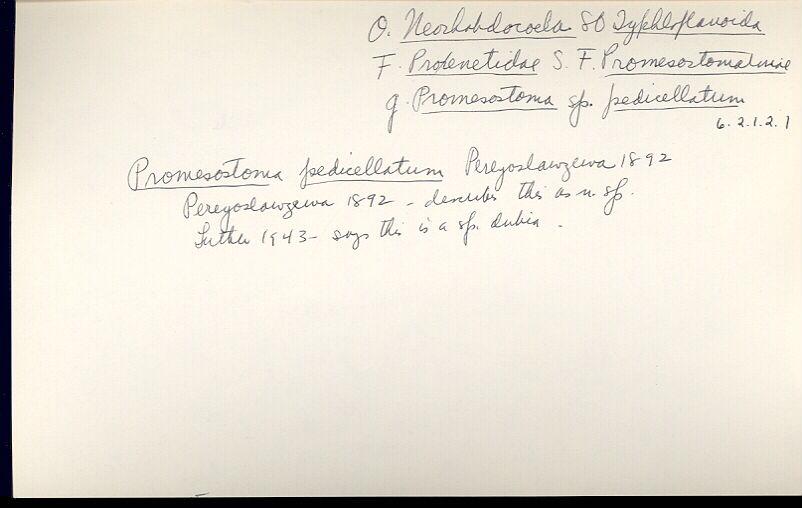 O. Neorhabdocoela SO Typhloplanoida
F. Proxenetidae S. F. Promesostomatinae
g. Promesostoma sp. pedicellatum
6. 2. 1. 2. 1
Promesostoma pedicellatum Pereyoslawzewa 1892
Pereyoslawzewa 1892 - describes this as n. sp.
Luther 1943 - says this is a sp. dubia.